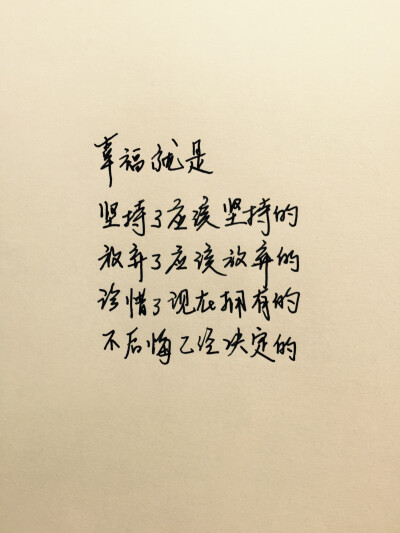 幸福就是
坚持了应该坚持的
放弃了应该放弃的
珍惜了现在拥有的
不后悔已经决定的